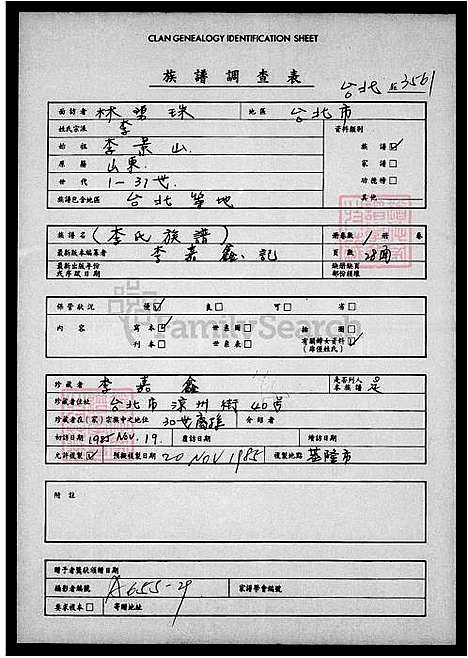 CLAN GENEALOGY IDENTIFICATION SHEET
族譜調查表
台北 3561
面訪者 林 珠 地區 台北市
姓氏宗派 李 資料類別
始祖 李景山 族譜
原籍 山東 家譜
世代 1-31世
族譜包含地區 台北 等地 其他
族譜名 (李氏族譜) 册卷數 1 册 卷
最新版本編纂者 李嘉鑫 記 頁數 28面
最新出版年份 缺册缺頁
或序跋日期 部份損壞
保管狀況 優 良 可 劣
內容 寫本 世系圖 插圖 有關婦女資料
刊本 世系表 (非僅姓氏)
珍藏者 李嘉鑫 是否列入本族譜 是
珍藏者住址 台北市涼州街40号
珍藏者在(家)宗族中之地位 30世裔孫 介紹者
初訪日 1985 NOV. 19. 覆訪日期 續訪日期
允許複製 預擬複製日期 20 NOV 1985 複製地點 基隆市
附註
贈予者獎狀頒贈日期
攝影者編號 A655-29 家譜學會編號
要求複本 寄贈地址
FamilySearch